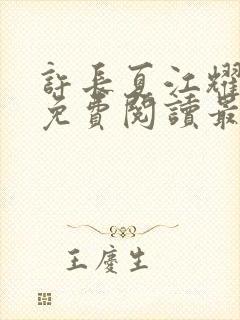 許長夏江耀
免費閱讀最
王慶生